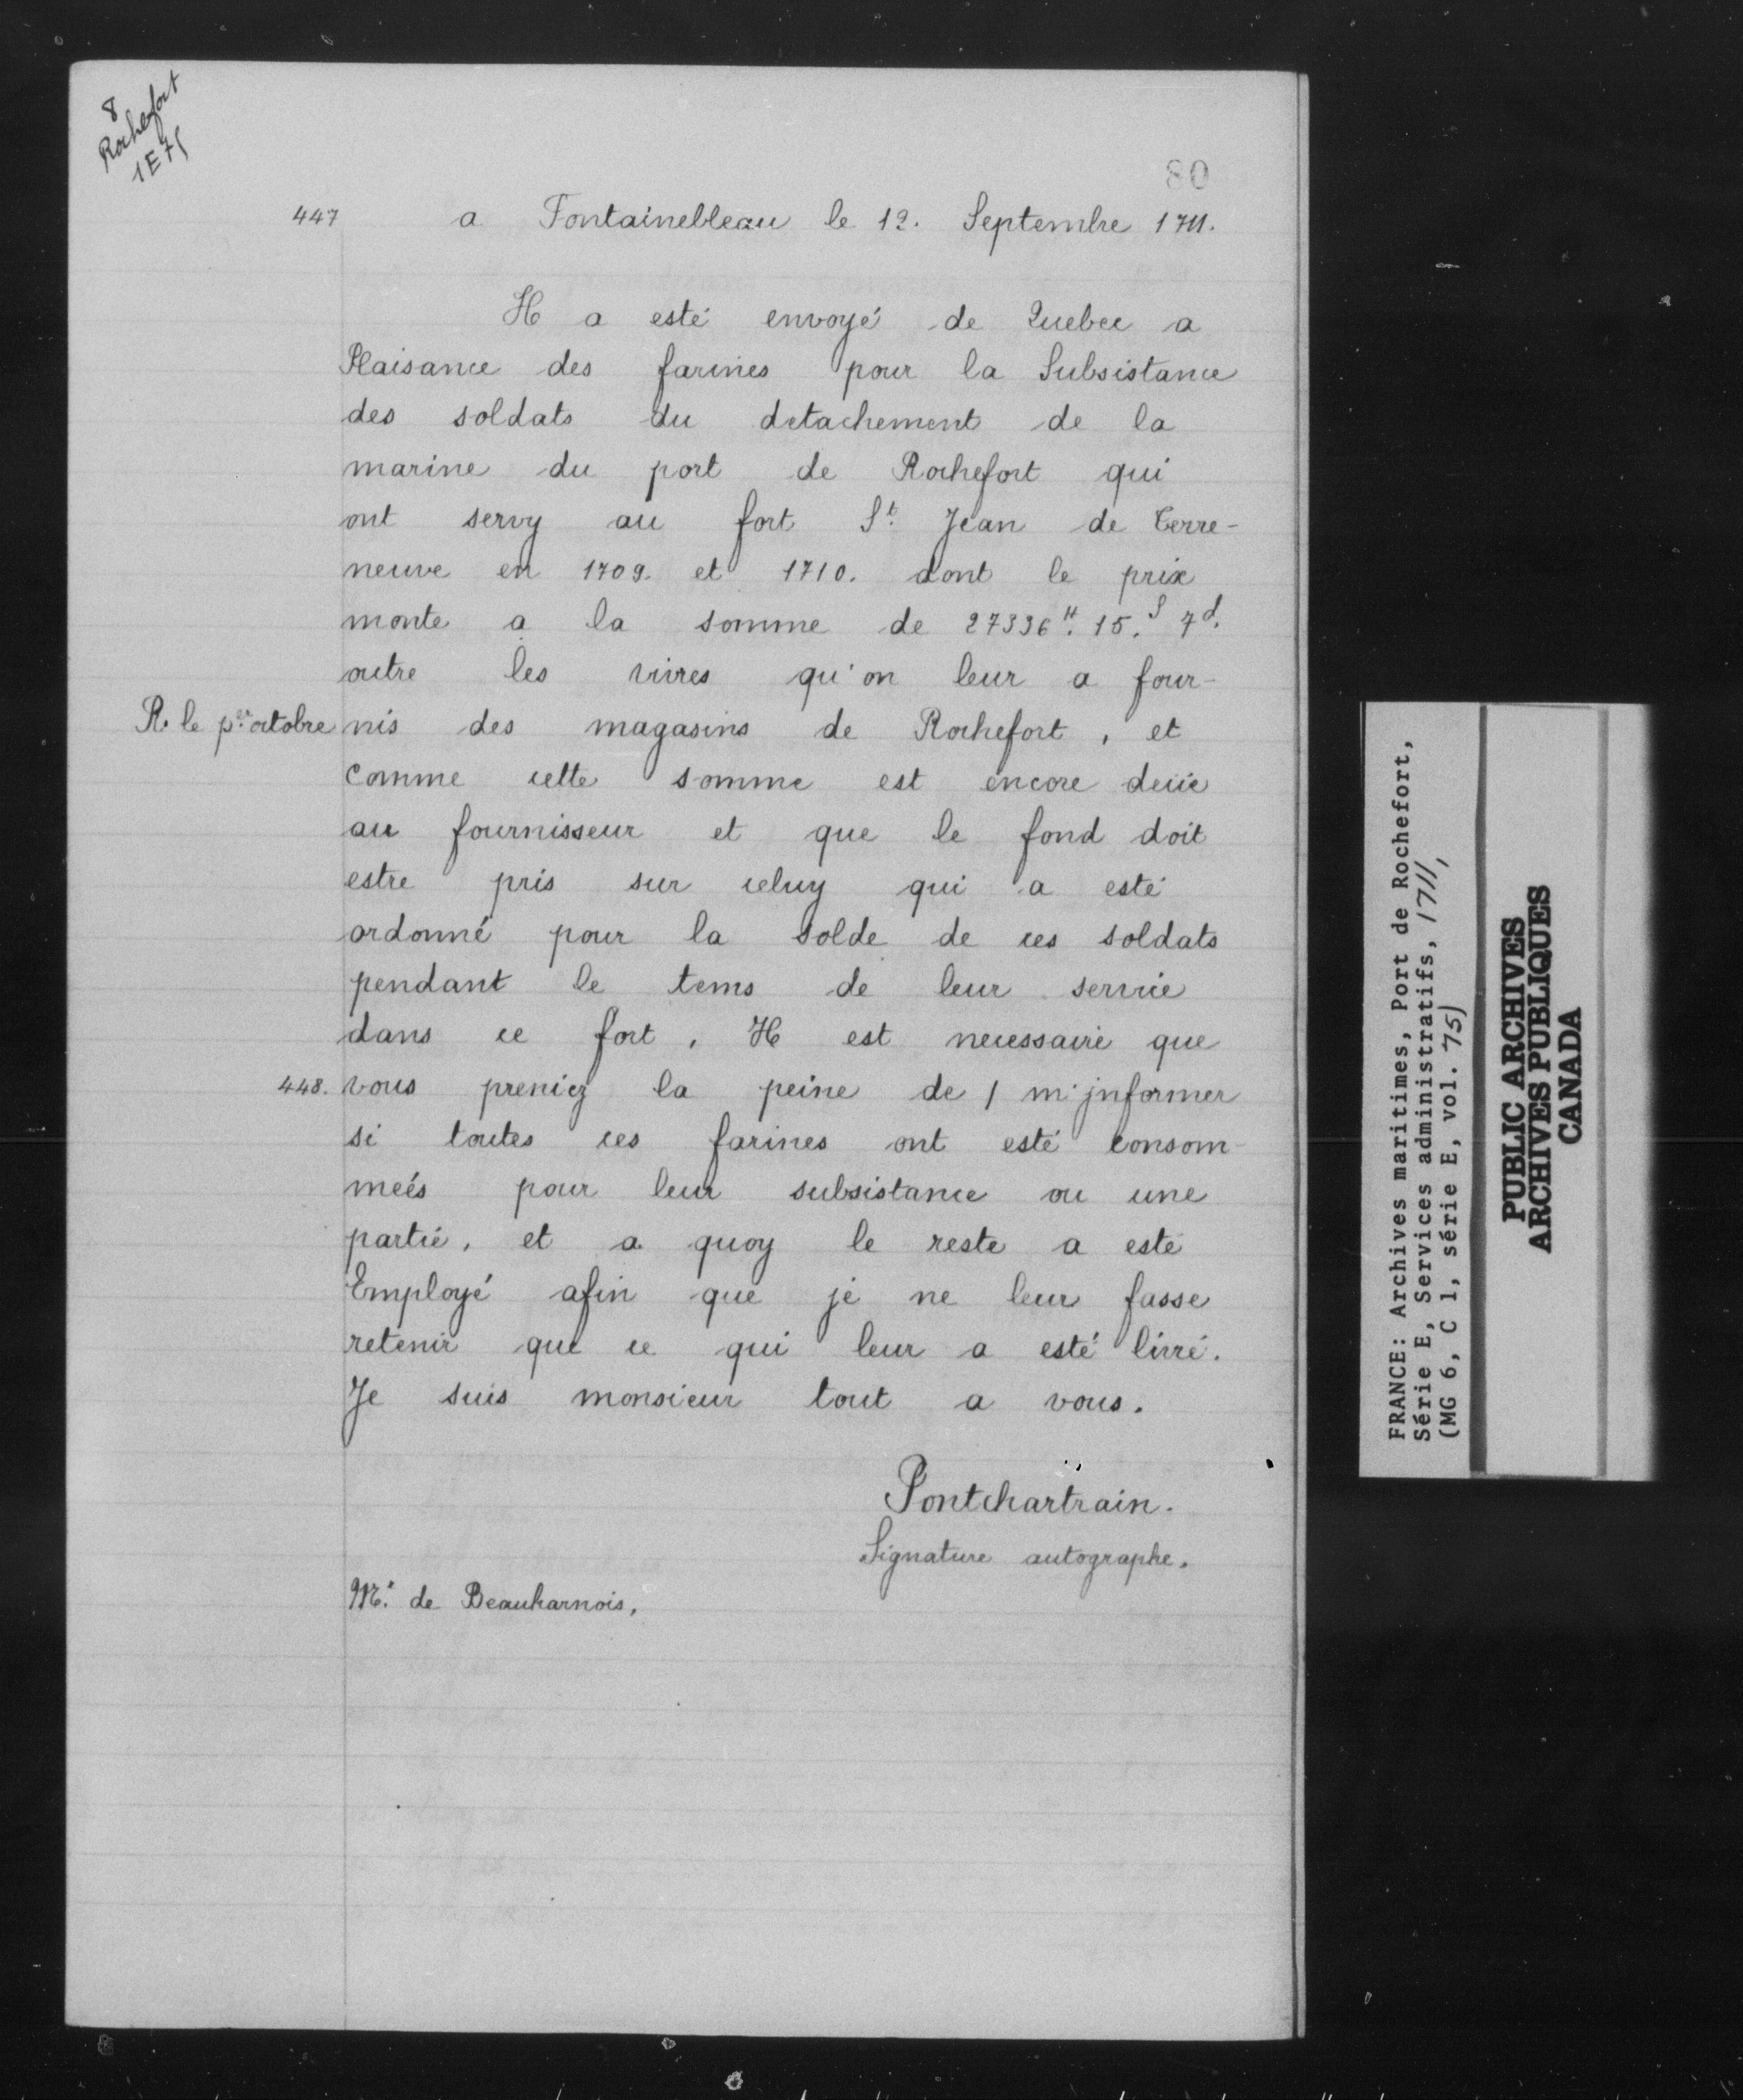 8
Rochefort
1E75
80
447 a Fontainebleau le 12. Septembre 1711.
Il a esté envoyé de Quebec a
Plaisance des farines pour la Subsistance
des soldats du detachement de la
marine du port de Rochefort qui
ont servy au fort St. Jean de Terre-
neuve en 1709. et 1710. dont le prix
monte a la somme de 27336 ₶. 15. s 7 d.
outre les vivres qu'on leur a four-
R. le per octobre nis des magasins de Rochefort, et
comme cette somme est encore deüe
au fournisseur et que le fond doit
estre pris sur celuy qui a esté
ordonné pour la solde de ces soldats
pendant le tems de leur service
dans ce fort, Il est necessaire que
448. vous preniez la peine de / m'jnformer
si toutes ces farines ont esté consom-
meés pour leur subsistance ou une
partie, et a quoy le reste a esté
Employé afin que je ne leur fasse
retenir que ce qui leur a esté livré.
Je suis monsieur tout a vous.
Pontchartrain.
Signature autographe.
Mr. de Beauharnois.
FRANCE: Archives maritimes, Port de Rochefort,
Série E, Services administratifs, 1711,
(MG 6, C 1, série E, vol. 75)
PUBLIC ARCHIVES
ARCHIVES PUBLIQUES
CANADA